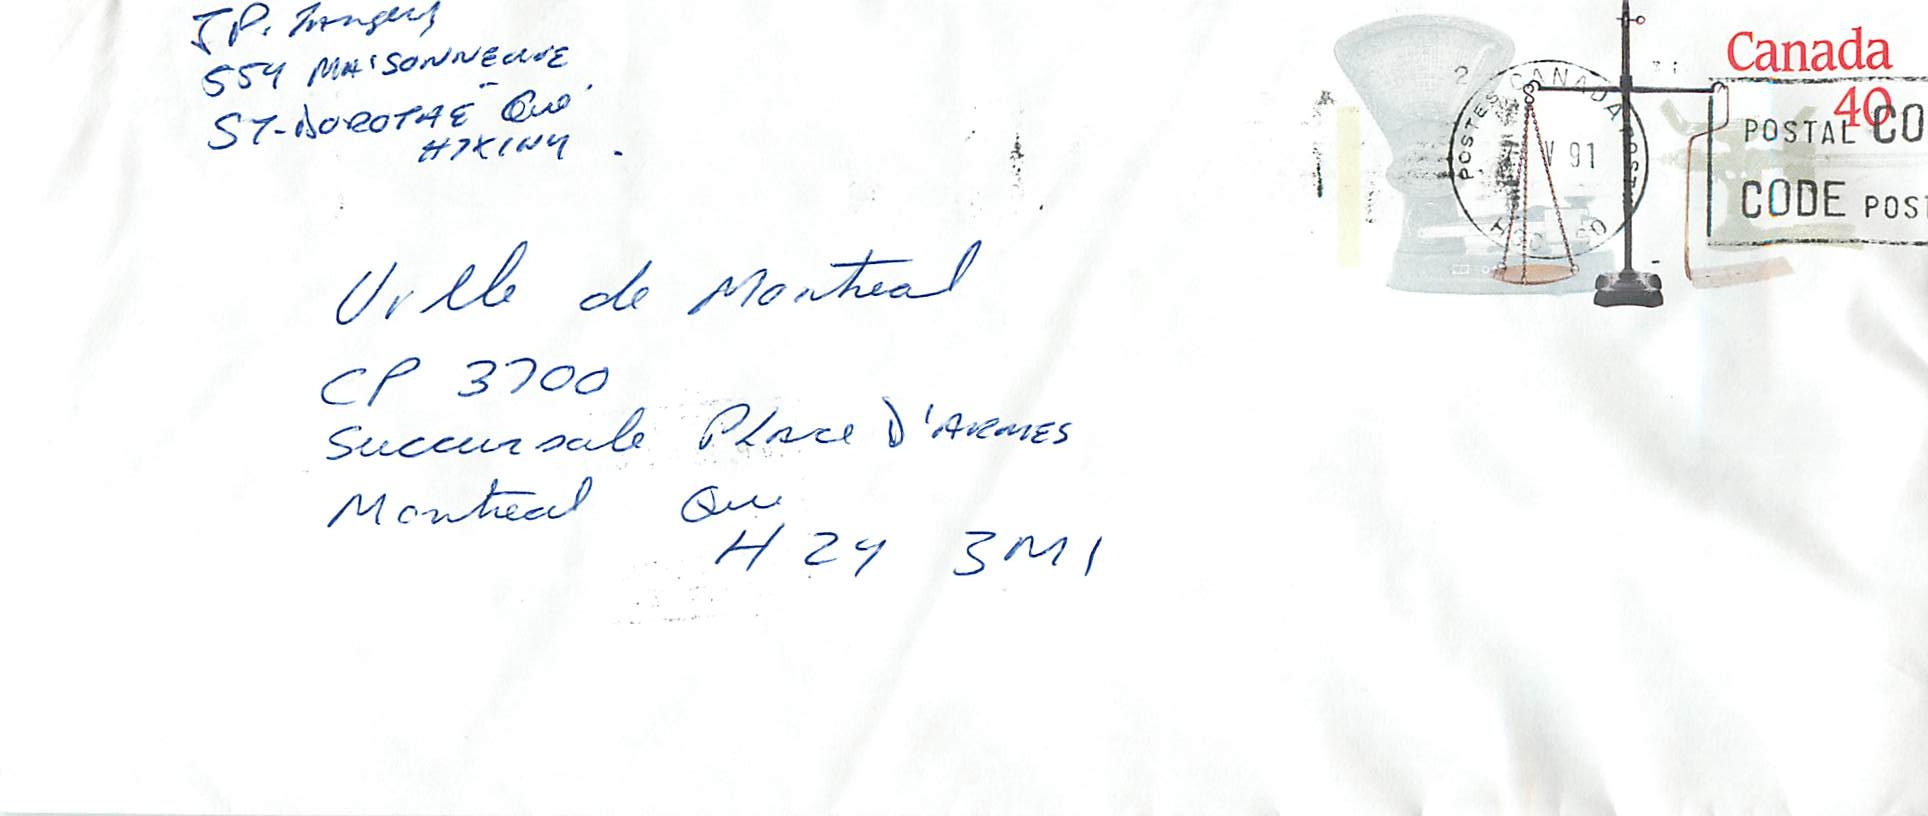 J P.
554 MAISONNEUVE
ST-DOROTHE Que
H7X1N4
Ville de Montreal
CP 3700
Succursale Place D'ARMES
Montreal Que
H 2Y 3M1
Canada
40
POSTES CANADA POST
V 91
POSTAL CO
CODE POST